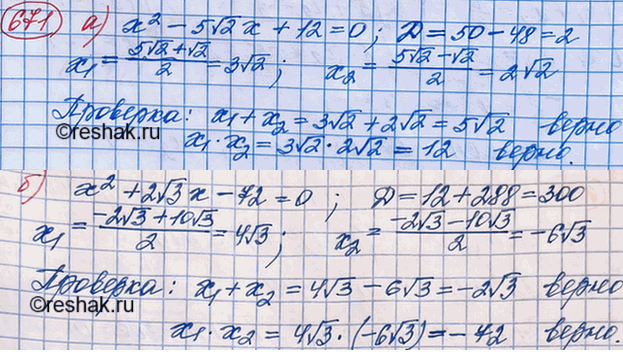 671 а) x² - 5√2 x + 12 = 0; D = 50 - 48 = 2
x₁ = (5√2 + √2)/2 = 3√2; x₂ = (5√2 - √2)/2 = 2√2
Проверка: x₁ + x₂ = 3√2 + 2√2 = 5√2 верно
©reshak.ru
x₁ · x₂ = 3√2 · 2√2 = 12 верно.
б) x² + 2√3 x - 72 = 0; D = 12 + 288 = 300
x₁ = (-2√3 + 10√3)/2 = 4√3; x₂ = (-2√3 - 10√3)/2 = -6√3
Проверка: x₁ + x₂ = 4√3 - 6√3 = -2√3 верно
©reshak.ru
x₁ · x₂ = 4√3 · (-6√3) = -72 верно.